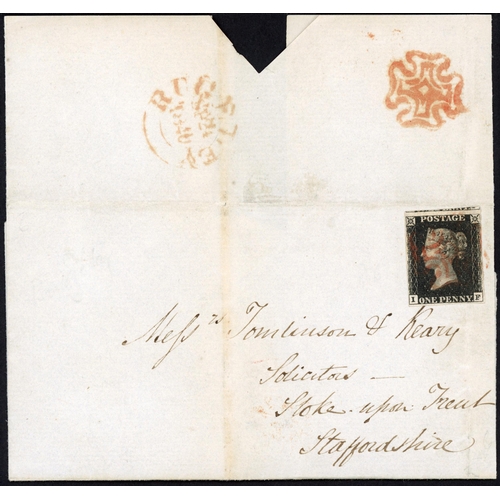 RUGELEY
POSTAGE
I F
ONE PENNY
Messrs Tomlinson & Keary
Solicitors —
Stoke upon Trent
Staffordshire